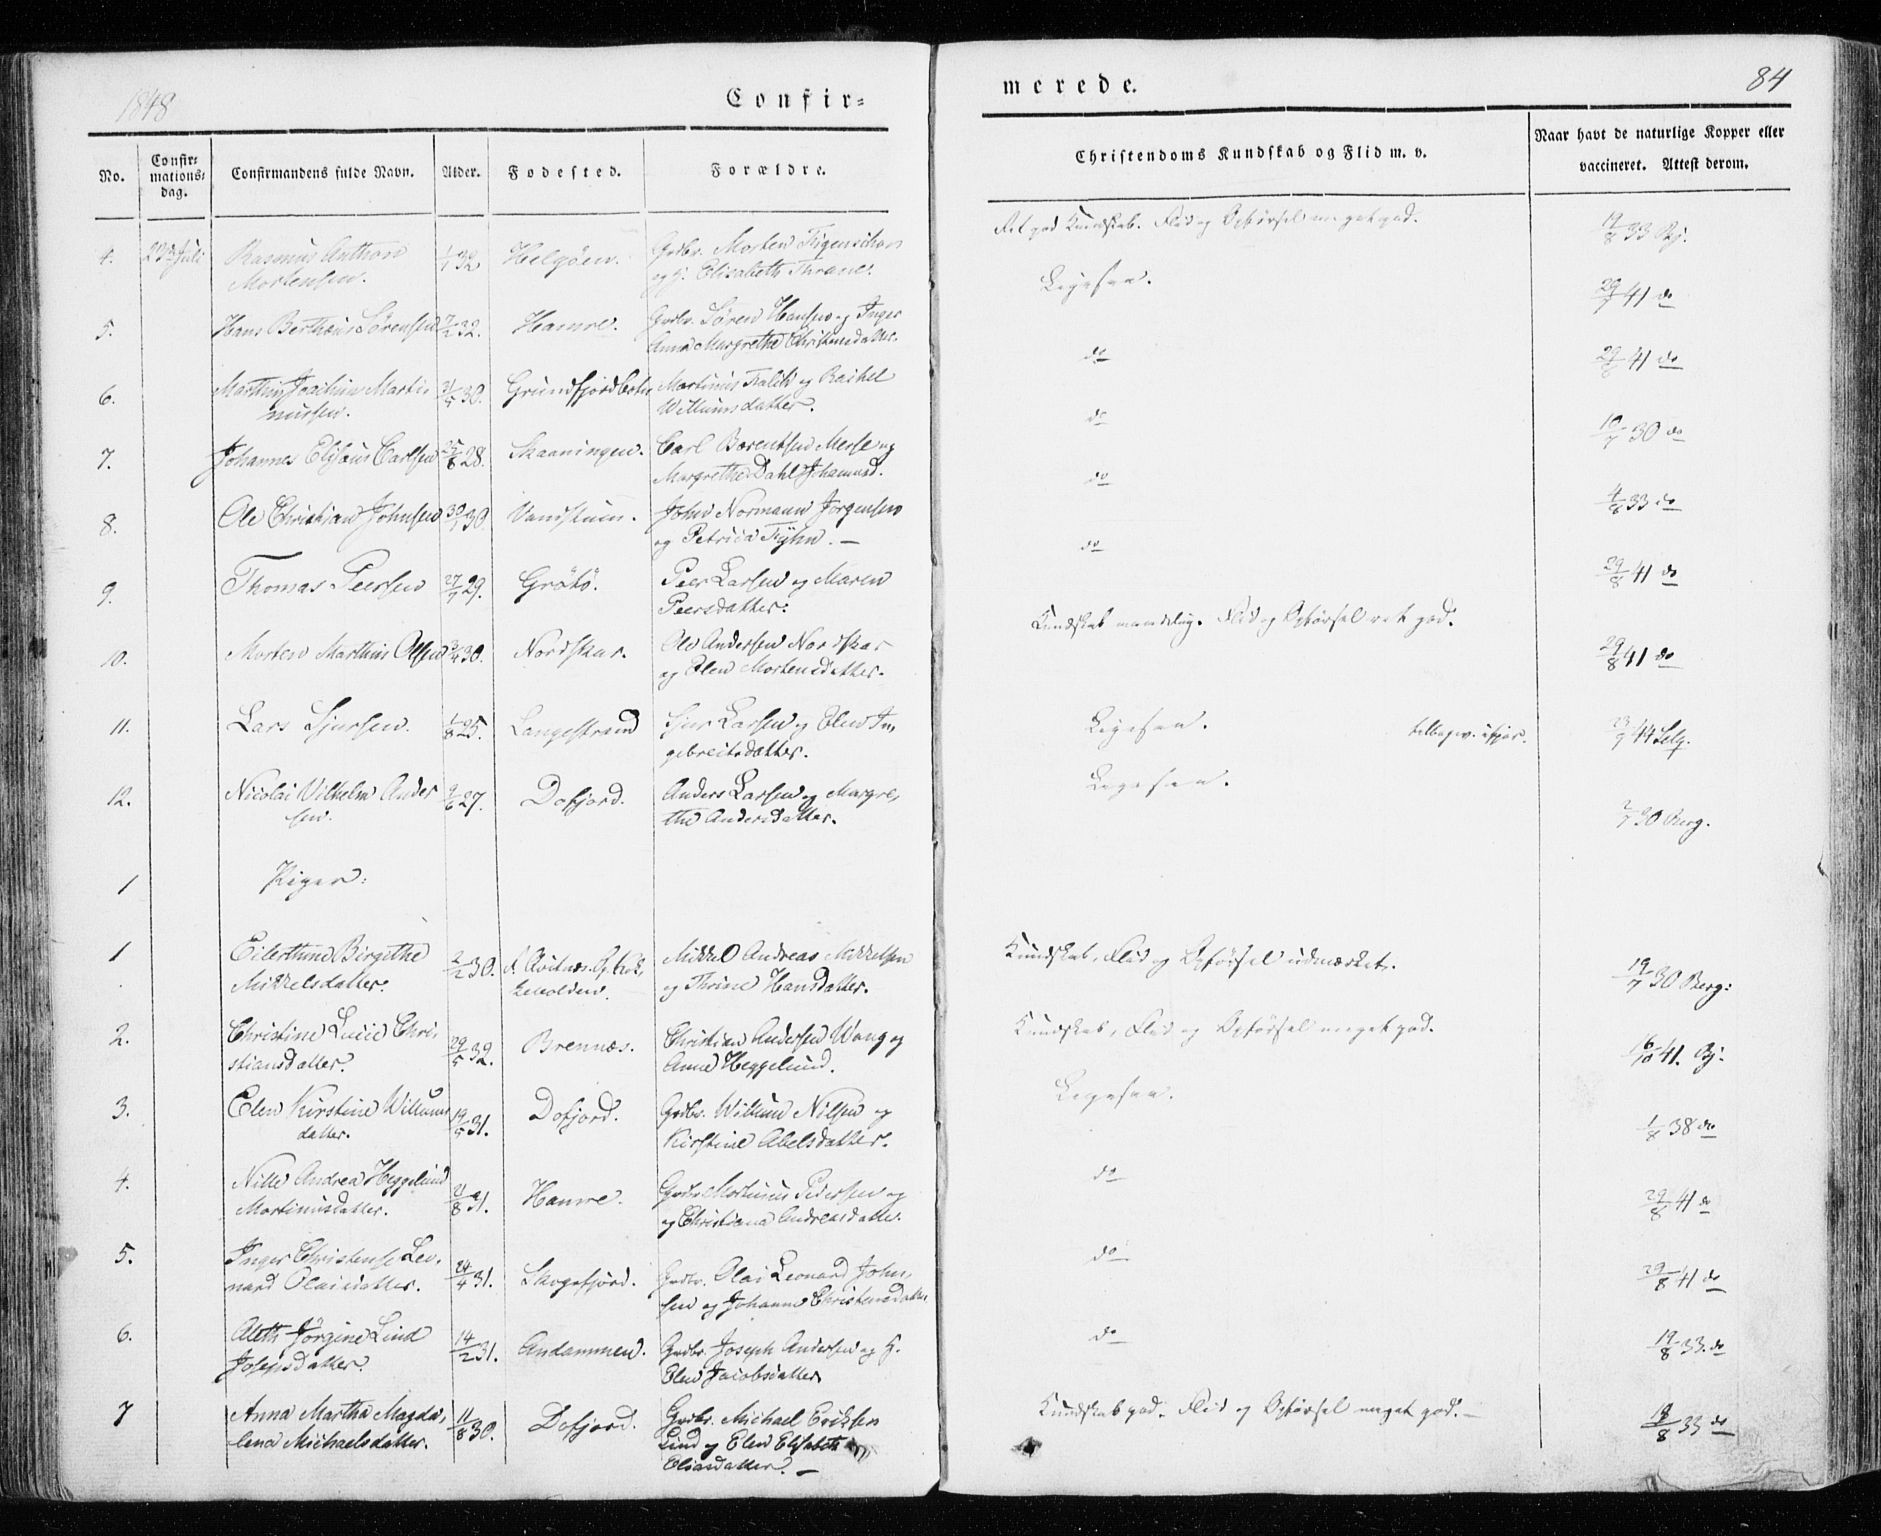 1848
Confir=
No.
Confir=
mations=
dag.
Confirmandens fulde Navn.
Alder.
Fodested.
Forældre.
4. 23de Juli Rasmus Anthon 1/1 32 Helgøen. Grdbr. Morten Figenschou
Mortensen. og H. Elisabeth Thrane.
5. Hans Berthæus Sørensen 7/2 32. Hamre. Grdbr. Søren Hansen og Inger
Anna Margrethe Christensdatter.
6. Marthin Joachim Marti 31/5 30. Grundfjordboten Martinus Falch og Rachel
nussen. Willumsdatter.
7. Johannes Elisæus Carlsen 25/8 28. Skaaningen. Carl Berentsen Mersel og
Margrethe Dahl Johannsd.
8. Ole Christian Johnsen 30/7 30. Vandstuen. John Normann Jørgensen
og Petricia Fyhn. —
9. Thomas Peersen 27/7 29. Grøtø. Peer Larsen og Maren
Peersdatter.
10. Morten Marthin Olsen 3/4 30. Nordskar. Ole Andersen Nordskar
og Elen Mortensdatter.
11. Lars Sjursen. 1/8 25. Langestrand Sjur Larsen og Elen In,
gebreitsdatter.
12. Nicolai Vilhelm Ander 9/6 27. Dofjord. Anders Larsen og Margre,
sen. the Andersdatter.
1 Piger:
1 Eilertine Birgithe 2/2 30. Mikkel Andreas Mikkelsen
Mikkelsdatter. og Thrine Hansdatter.
2. Christine Lucie Chri, 29/5 32. Brennæs. Christian Andersen Wang og
stiansdatter. Anne Heggelund.
3. Elen Kirstine Willums 19/5 31. Dofjord. Grdbr. Willum Nilsen og
datter. Kirstine Abelsdatter.
4. Nille Andrea Heggelund 21/8 31. Hamre. Grdbr. Martinus Pedersen og
Martinusdatter. og Christiana Andreasdatter.
5. Inger Christense Leo, 24/4 31. Skogsfjord. Grdbr. Olai Leonard John,
nard Olaisdatter. sen og Johanne Christensdatter
6. Aleth Jørgine Lind 14/2 31. Andammen. Grdbr. Joseph Andersen og H.
Josephsdatter. Elen Jacobsdatter
7 Anna Martha Magda, 11/8 30. Dofjord. Grdbr. Michael Eriksen
lena Michaelsdatter. Lind og Elen Elisabeth
Eliasdatter. —
merede.
84
Christendoms Kundskab og Flid m. v.
Naar havt de naturlige Kopper eller
vaccineret. Attest derom.
Ret god Kundskab. Flid og Opførsel meget god. 19/8 33 Bj.
Ligesaa. 29/7 41 do
do 29/8 41 do
do 10/7 30 do
do 4/8 33 do
do 29/8 41 do
Kundskab maadelig. Flid og Opførsel ret god. 29/8 41 do
Ligesaa. 23/7 44
Ligesaa. 2/7 30 Berg.
Kundskab, Flid og Opførsel udmærket. 19/7 30 Berg:
Kundskab, Flid og Opførsel meget god. 6/10 41. Bj.
Ligesaa. 1/8 38 do
do 29/8 41 do
do 29/8 41 do
do 19/8 33. do
Kundskab god. Flid og Opførsel meget god. — 19/8 33 do